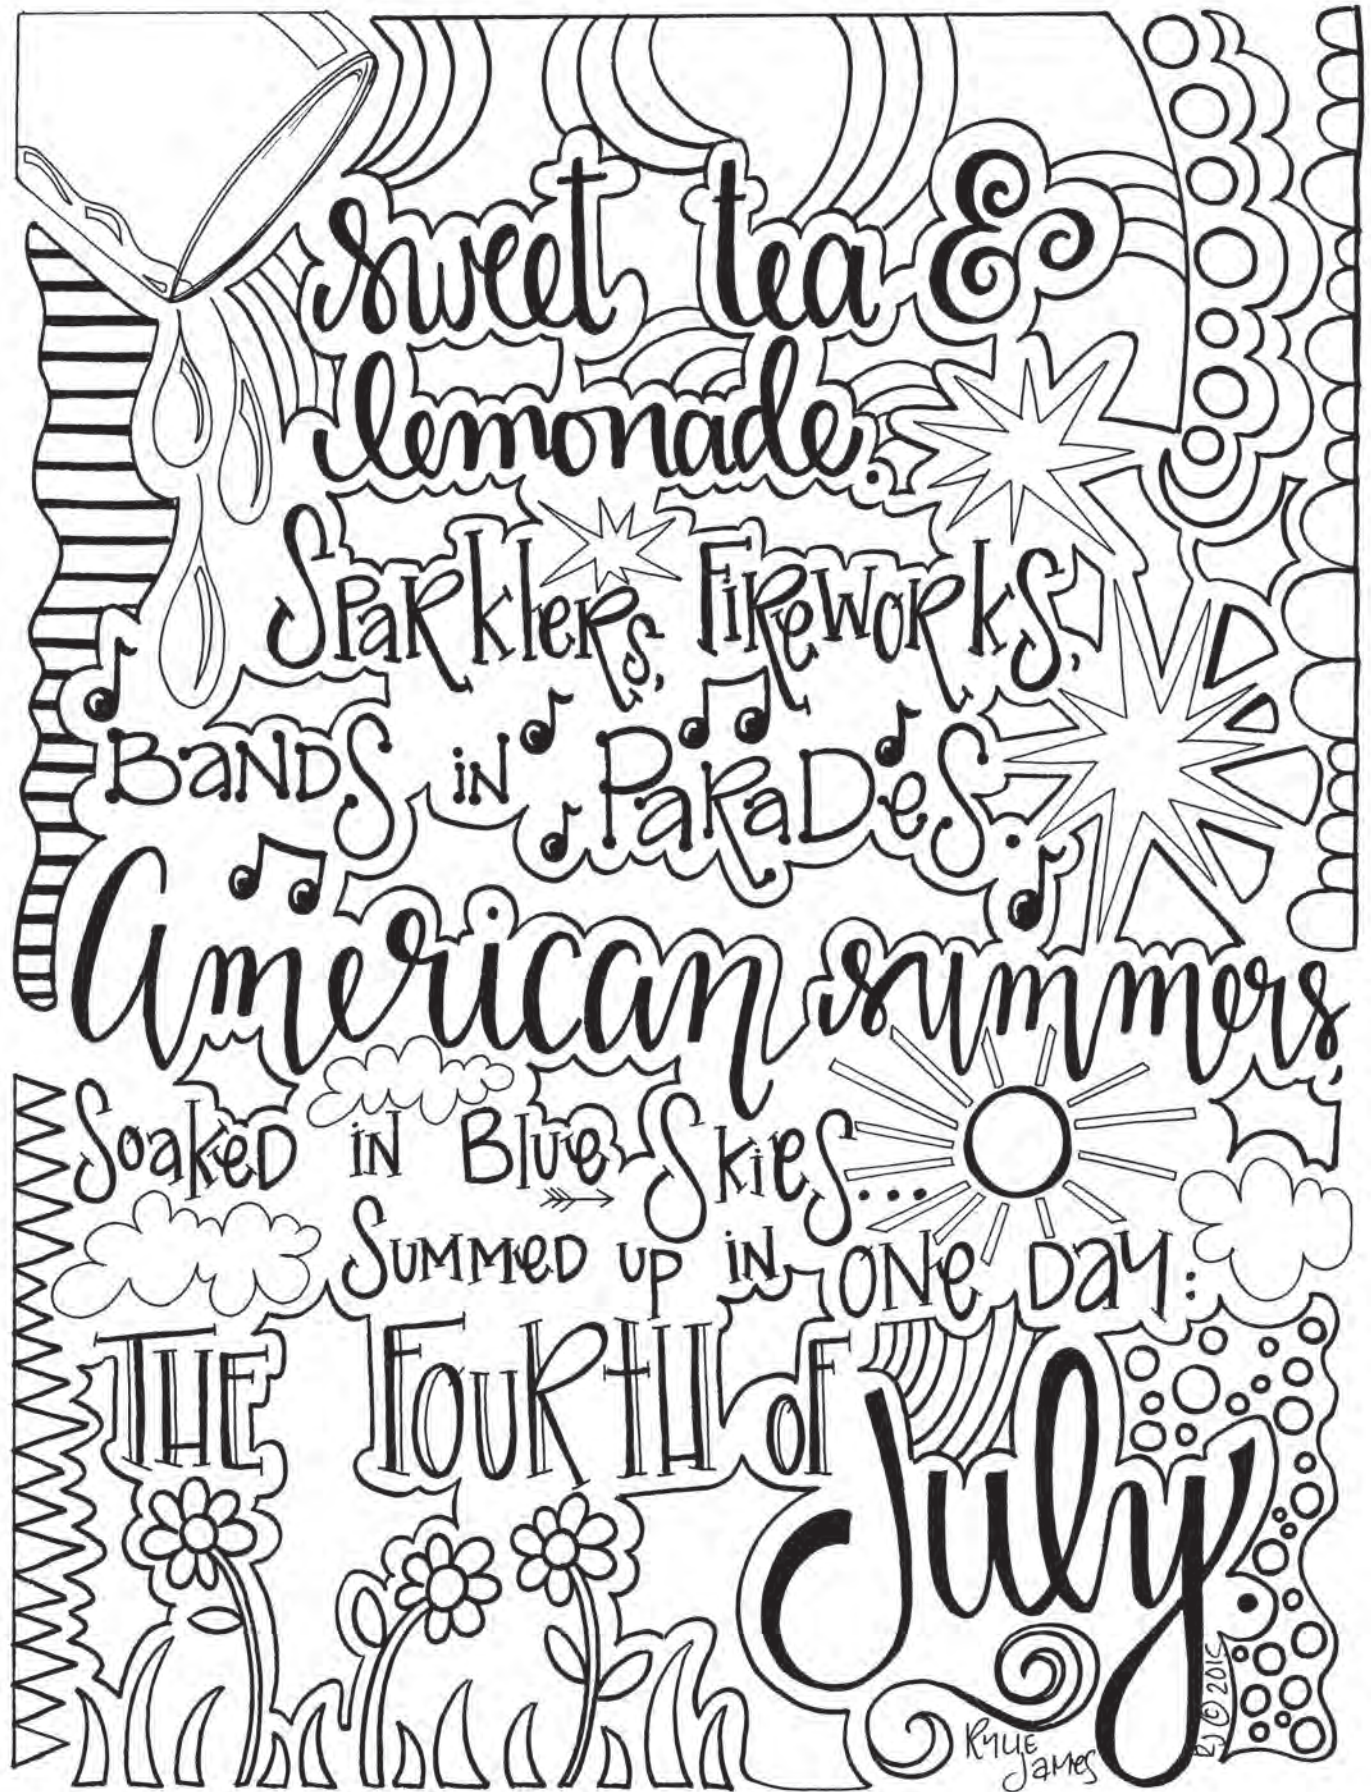 sweet tea &
lemonade.
Sparklers, Fireworks,
Bands in Parades.
American summers,
Soaked in Blue Skies...
Summed up in one day:
The Fourth of
July
Rylie
James
RJ © 2015